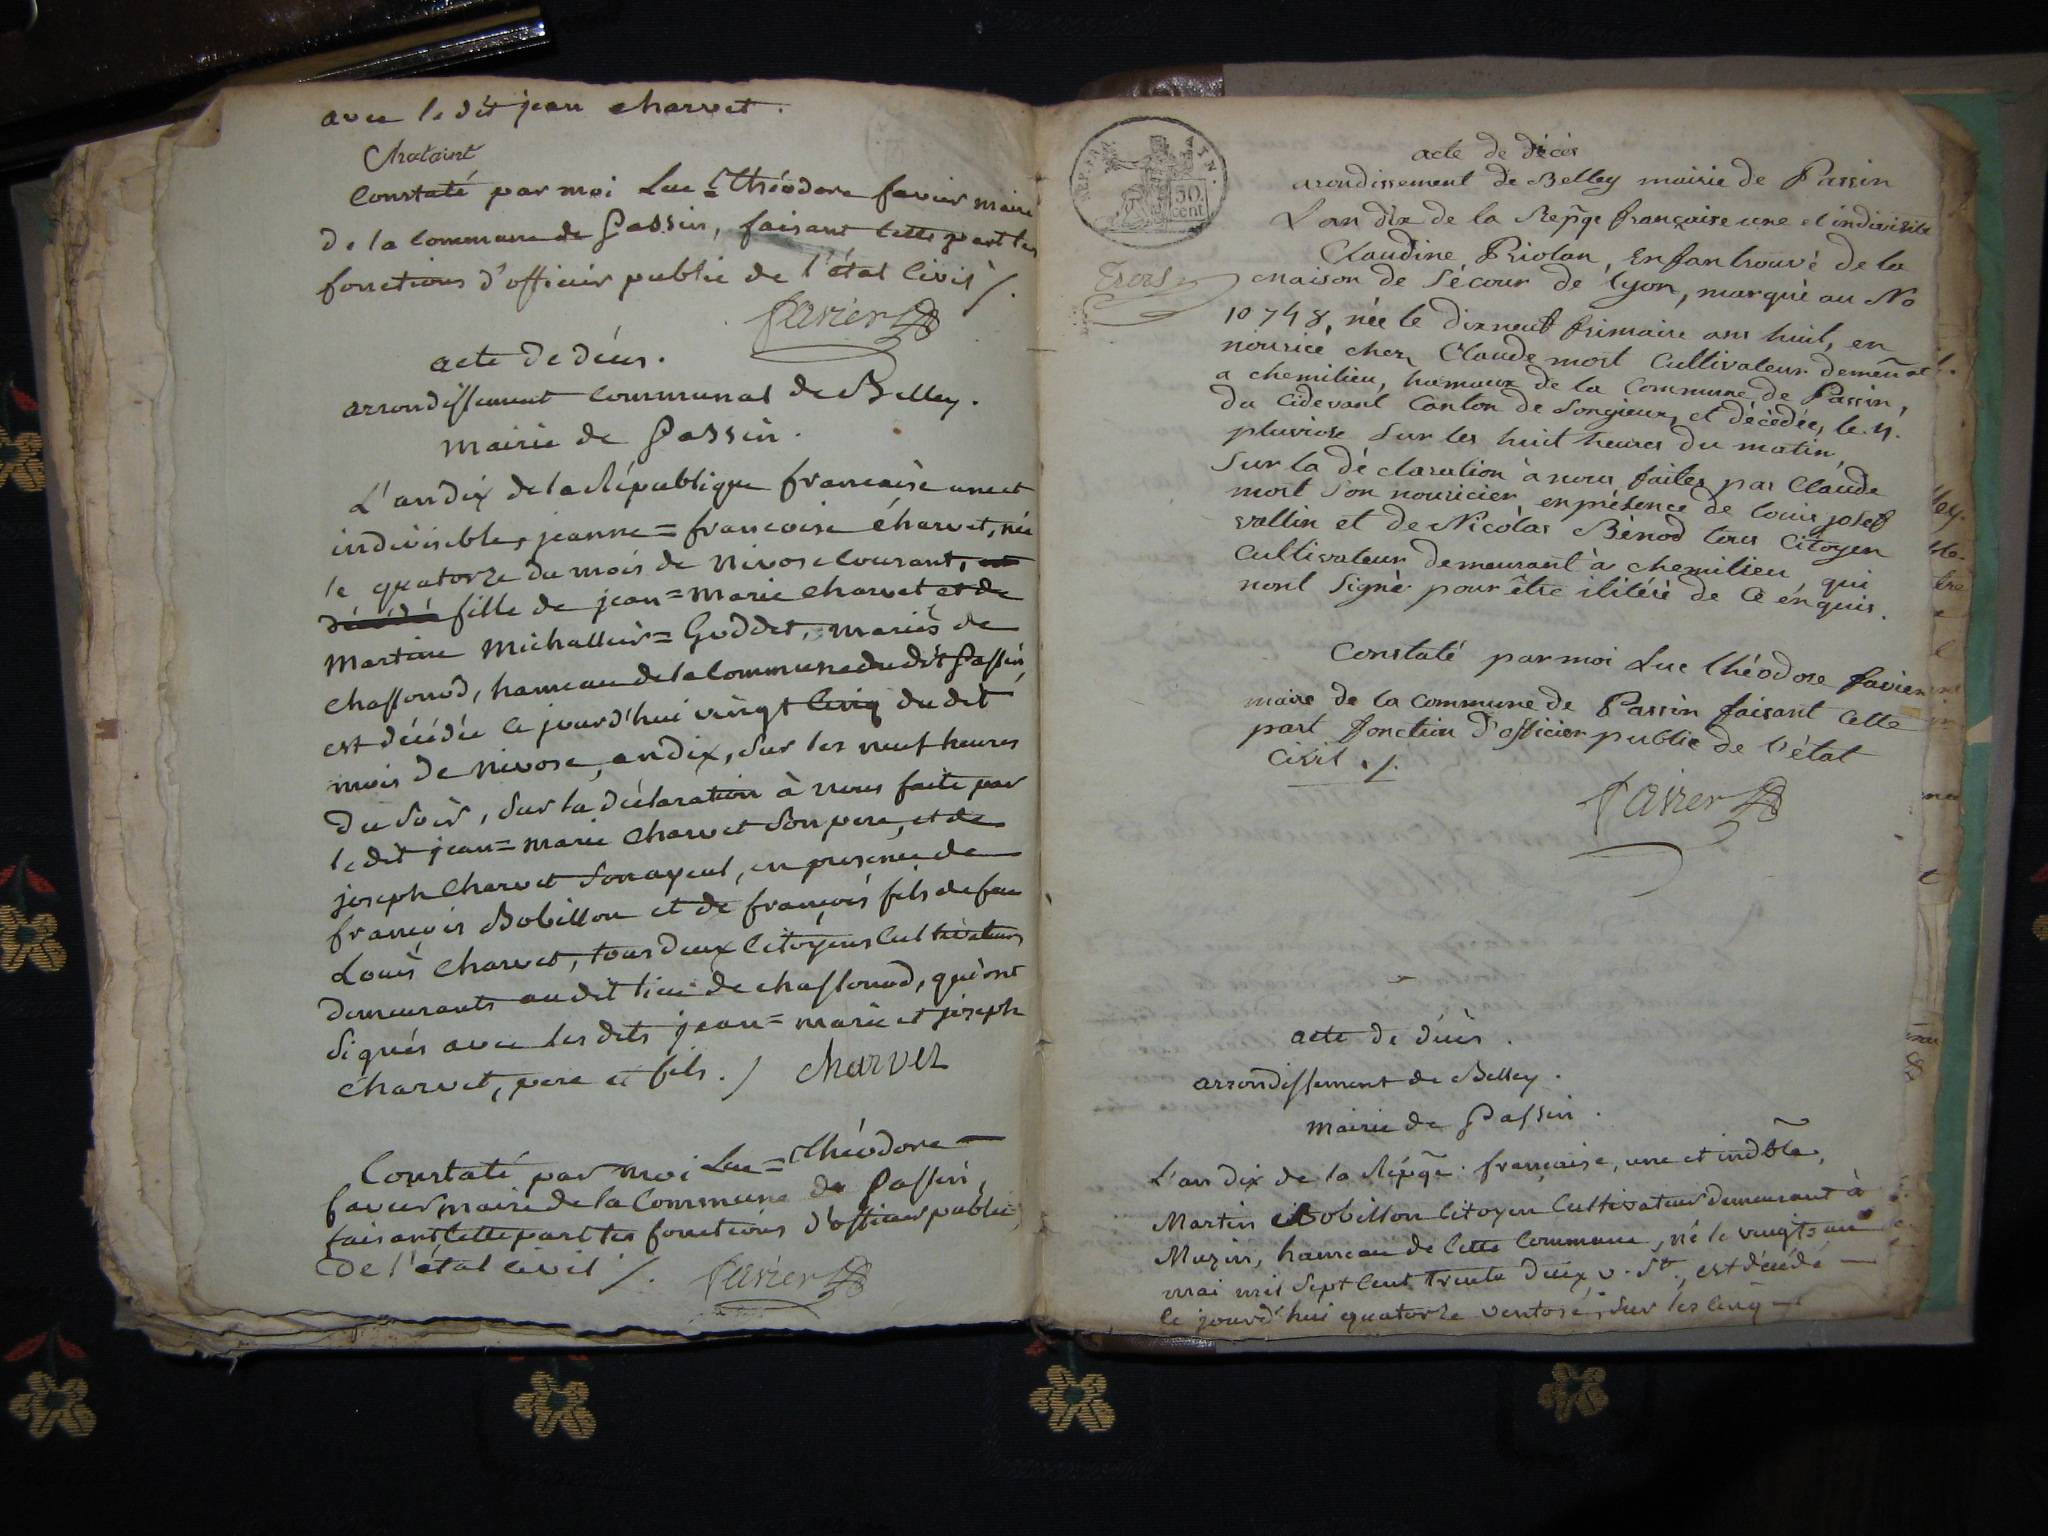 avec le dit jean charvet.
Chataint
Constaté par moi Luc=Théodore favier maire
de la commune de Passin, faisant cette part les
fonctions d'officier public de l'état civil /.
Favier
acte de décès.
arrondissement communal de Belley.
mairie de Passin.
L'an dix de la République francaise une et
indivisible, jeanne=francoise charvet, née
le quatorze du mois de nivose courant, et
décédé fille de jean=marie charvet et de
martine michallier=Goddet, mariés de
chassonod, hameau de la commune du dit Passin,
est décédée ce jourd'hui vingt cinq du dit
mois de nivose, an dix, sur les neuf heures
du soir, sur la déclaration à nous faite par
le dit jean=marie charvet son pere, et de
joseph charvet son ayeul, en presence de
francois Bobillon et de françois fils de feu
Louis charvet, tous deux citoyens cultivateurs
demeurants au dit lieu de chassonod, qui ont
signés avec les dits jean=marie et joseph
charvet, pere et fils. / charvet
Constaté par moi Luc=Théodore
favier maire de la commune de Passin,
faisant cette part les fonctions d'officier public
de l'état civil /. Favier
REP. FRA. AIN.
50 cent
trois
acte de décès
arondissement de Belley mairie de Passin
L an dix de la Repqe françoise une et indivisible
Claudine Priolan, enfan trouvé de la
maison de sécour de lyon, marqué au No
10748, née le dixneuf frimaire ans huit, en
nourice chez Claude mort Cultivateur demeurat
a chemilieu, hamaux de la Commune de Passin,
du cidevant Canton de Songieux, et décédée, le 11.
pluviose sur les huit heures du matin,
sur la déclaration à nous faites par Claude
mort son nouricier en présence de louis josef
vallin et de Nicolas Bénod tous citoyen
cultivateur demeurant à chemilieu, qui
nont signé pour être ilitéré de ce enquis.
Constaté par moi Luc théodore favier
maire de la commune de Passin faisant cette
part fonction d'officier public de l'état
civil ./.
Favier
acte de décès.
arrondissement de Belley.
mairie de Passin.
L'an dix de la Répqe. française, une et indble,
Martin Bobillon citoyen cultivateur demeurant à
Muzin, hameau de cette commune, né le vingt un
mai mil sept cent trente deux v. st., est décédé
ce jourd'hui quatorze ventose, sur les cinq